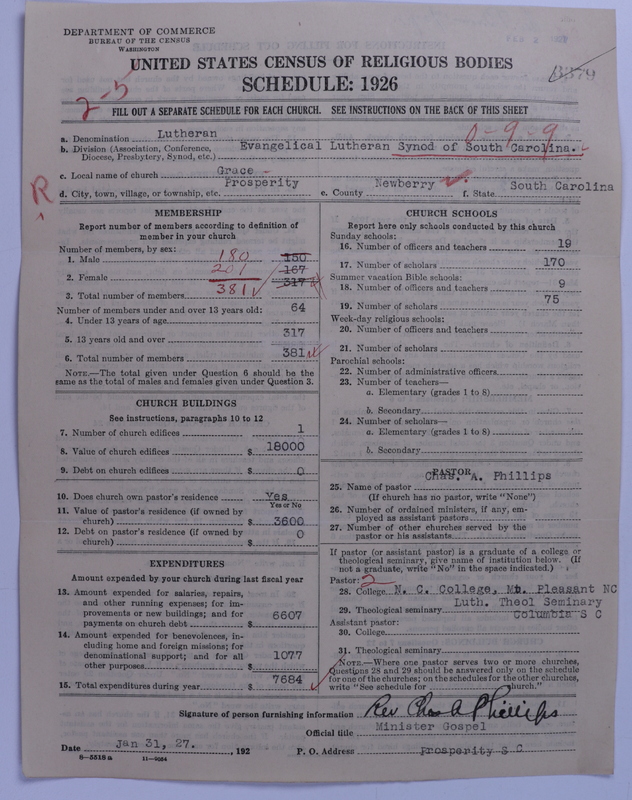 DEPARTMENT OF COMMERCE
BUREAU OF THE CENSUS
WASHINGTON
UNITED STATES CENSUS OF RELIGIOUS BODIES
SCHEDULE: 1926
2-5
FILL OUT A SEPARATE SCHEDULE FOR EACH CHURCH. SEE INSTRUCTIONS ON THE BACK OF THIS SHEET
0-9-9
a. Denomination Lutheran
b. Division (Association, Conference, Diocese, Presbytery, Synod, etc.) Evangelical Lutheran Synod of South Carolina.
c. Local name of church Grace
R
d. City, town, village, or township, etc. Prosperity e. County Newberry f. State South Carolina
MEMBERSHIP
Report number of members according to definition of
member in your church
Number of members, by sex:
1. Male 180 150
2. Female 201 167
3. Total number of members 381 317
Number of members under and over 13 years old:
4. Under 13 years of age 64
5. 13 years old and over 317
6. Total number of members 381
NOTE.—The total given under Question 6 should be the
same as the total of males and females given under Question 3.
CHURCH BUILDINGS
See instructions, paragraphs 10 to 12
7. Number of church edifices 1
8. Value of church edifices $ 18000
9. Debt on church edifices $ 0
10. Does church own pastor's residence Yes
Yes or No
11. Value of pastor's residence (if owned by
church) $ 3600
12. Debt on pastor's residence (if owned by
church) $ 0
EXPENDITURES
Amount expended by your church during last fiscal year
13. Amount expended for salaries, repairs,
and other running expenses; for im-
provements or new buildings; and for
payments on church debt $ 6607
14. Amount expended for benevolences, in-
cluding home and foreign missions; for
denominational support; and for all
other purposes $ 1077
15. Total expenditures during year $ 7684
CHURCH SCHOOLS
Report here only schools conducted by this church
Sunday schools:
16. Number of officers and teachers 19
17. Number of scholars 170
Summer vacation Bible schools:
18. Number of officers and teachers 9
19. Number of scholars 75
Week-day religious schools:
20. Number of officers and teachers
21. Number of scholars
Parochial schools:
22. Number of administrative officers
23. Number of teachers—
a. Elementary (grades 1 to 8)
b. Secondary
24. Number of scholars—
a. Elementary (grades 1 to 8)
b. Secondary
PASTOR
25. Name of pastor Chas. A. Phillips
(If church has no pastor, write "None")
26. Number of ordained ministers, if any, em-
ployed as assistant pastors
27. Number of other churches served by the
pastor or his assistants
If pastor (or assistant pastor) is a graduate of a college or
theological seminary, give name of institution below. (If
not a graduate, write "No" in the space indicated.)
Pastor: 2
28. College N. C. College, Mt. Pleasant NC
29. Theological seminary Luth. Theol Seminary
Columbia S C
Assistant pastor:
30. College
31. Theological seminary
NOTE.—Where one pastor serves two or more churches,
Questions 28 and 29 should be answered only on the schedule
for one of the churches; on the schedules for the other churches,
write "See schedule for church."
Signature of person furnishing information Rev Chas A Phillips
Official title Minister Gospel
Date Jan 31, 27. , 192 P. O. Address Prosperity S C
8-5516 a 11-9034